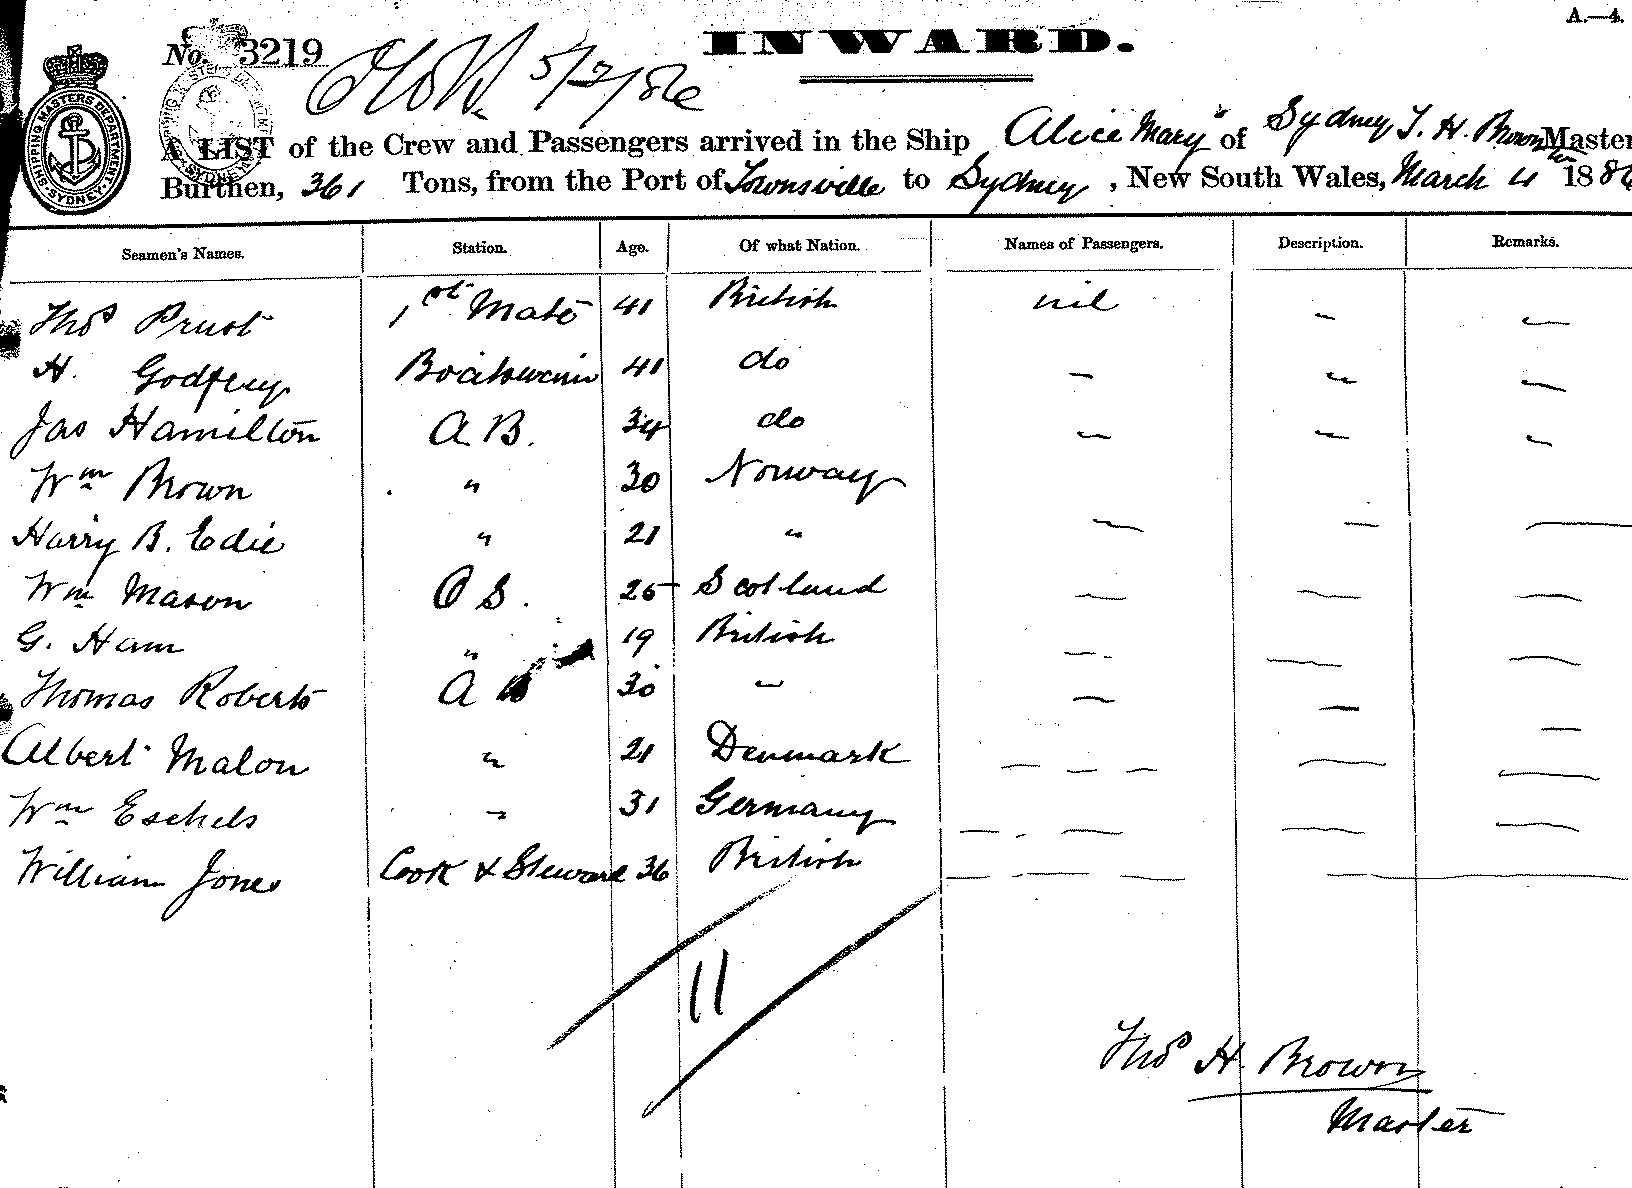 A.—4.
No. 3219 INWARD.
5/2/86
SHIPPING MASTERS DEPARTMENT SYDNEY
A LIST of the Crew and Passengers arrived in the Ship Alice Mary of Sydney T. H. Brown Master
Burthen, 361 Tons, from the Port of Townsville to Sydney, New South Wales, March 4th 188
Seamen's Names. Station. Age. Of what Nation. Names of Passengers. Description. Remarks.
Thos Prust 1st Mate 41 British nil — —
H. Godfrey Boatswain 41 do — — —
Jas Hamilton A B. 34 do — — —
Wm Brown " 30 Norway
Harry B. Edie " 21 " — — —
Wm Mason O S. 25 Scotland — — —
G. Ham " 19 British — — —
Thomas Roberts A B 30 " — — —
Albert Malon " 21 Denmark — — — — —
Wm Eschels " 31 Germany — — — —
William Jones Cook & Steward 36 British — — — —
11
Thos H. Brown
Master